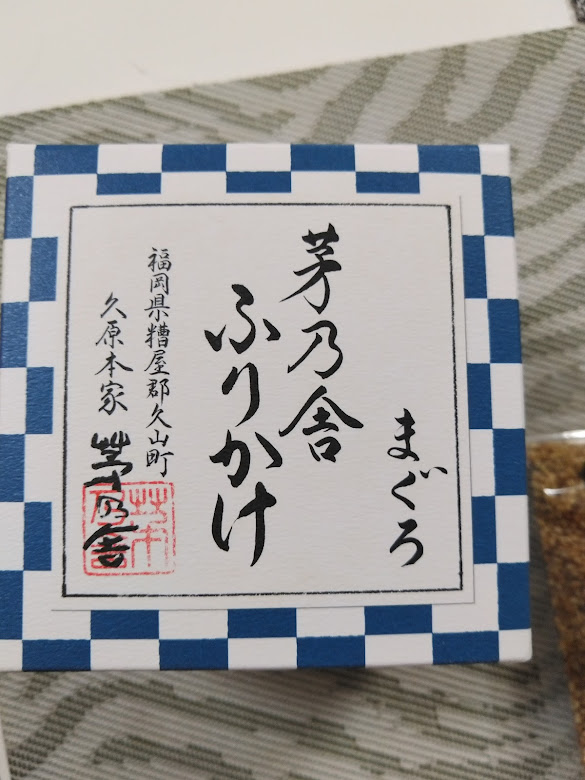 まぐろ
茅乃舎
ふりかけ
福岡県糟屋郡久山町
久原本家
茅乃舎